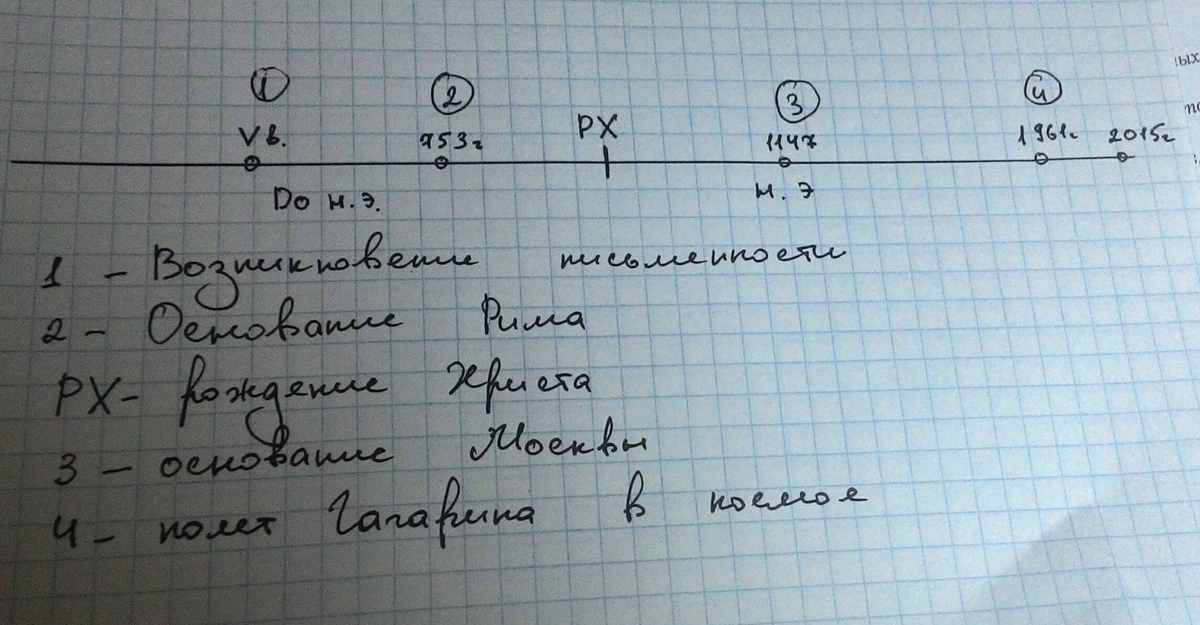 1 2 3 4
V в. 753г РХ 1147 1961г 2015г
До н.э. н.э
1 - Возникновение письменности
2 - Основание Рима
РХ - рождение Христа
3 - основание Москвы
4 - полет Гагарина в космос
ых